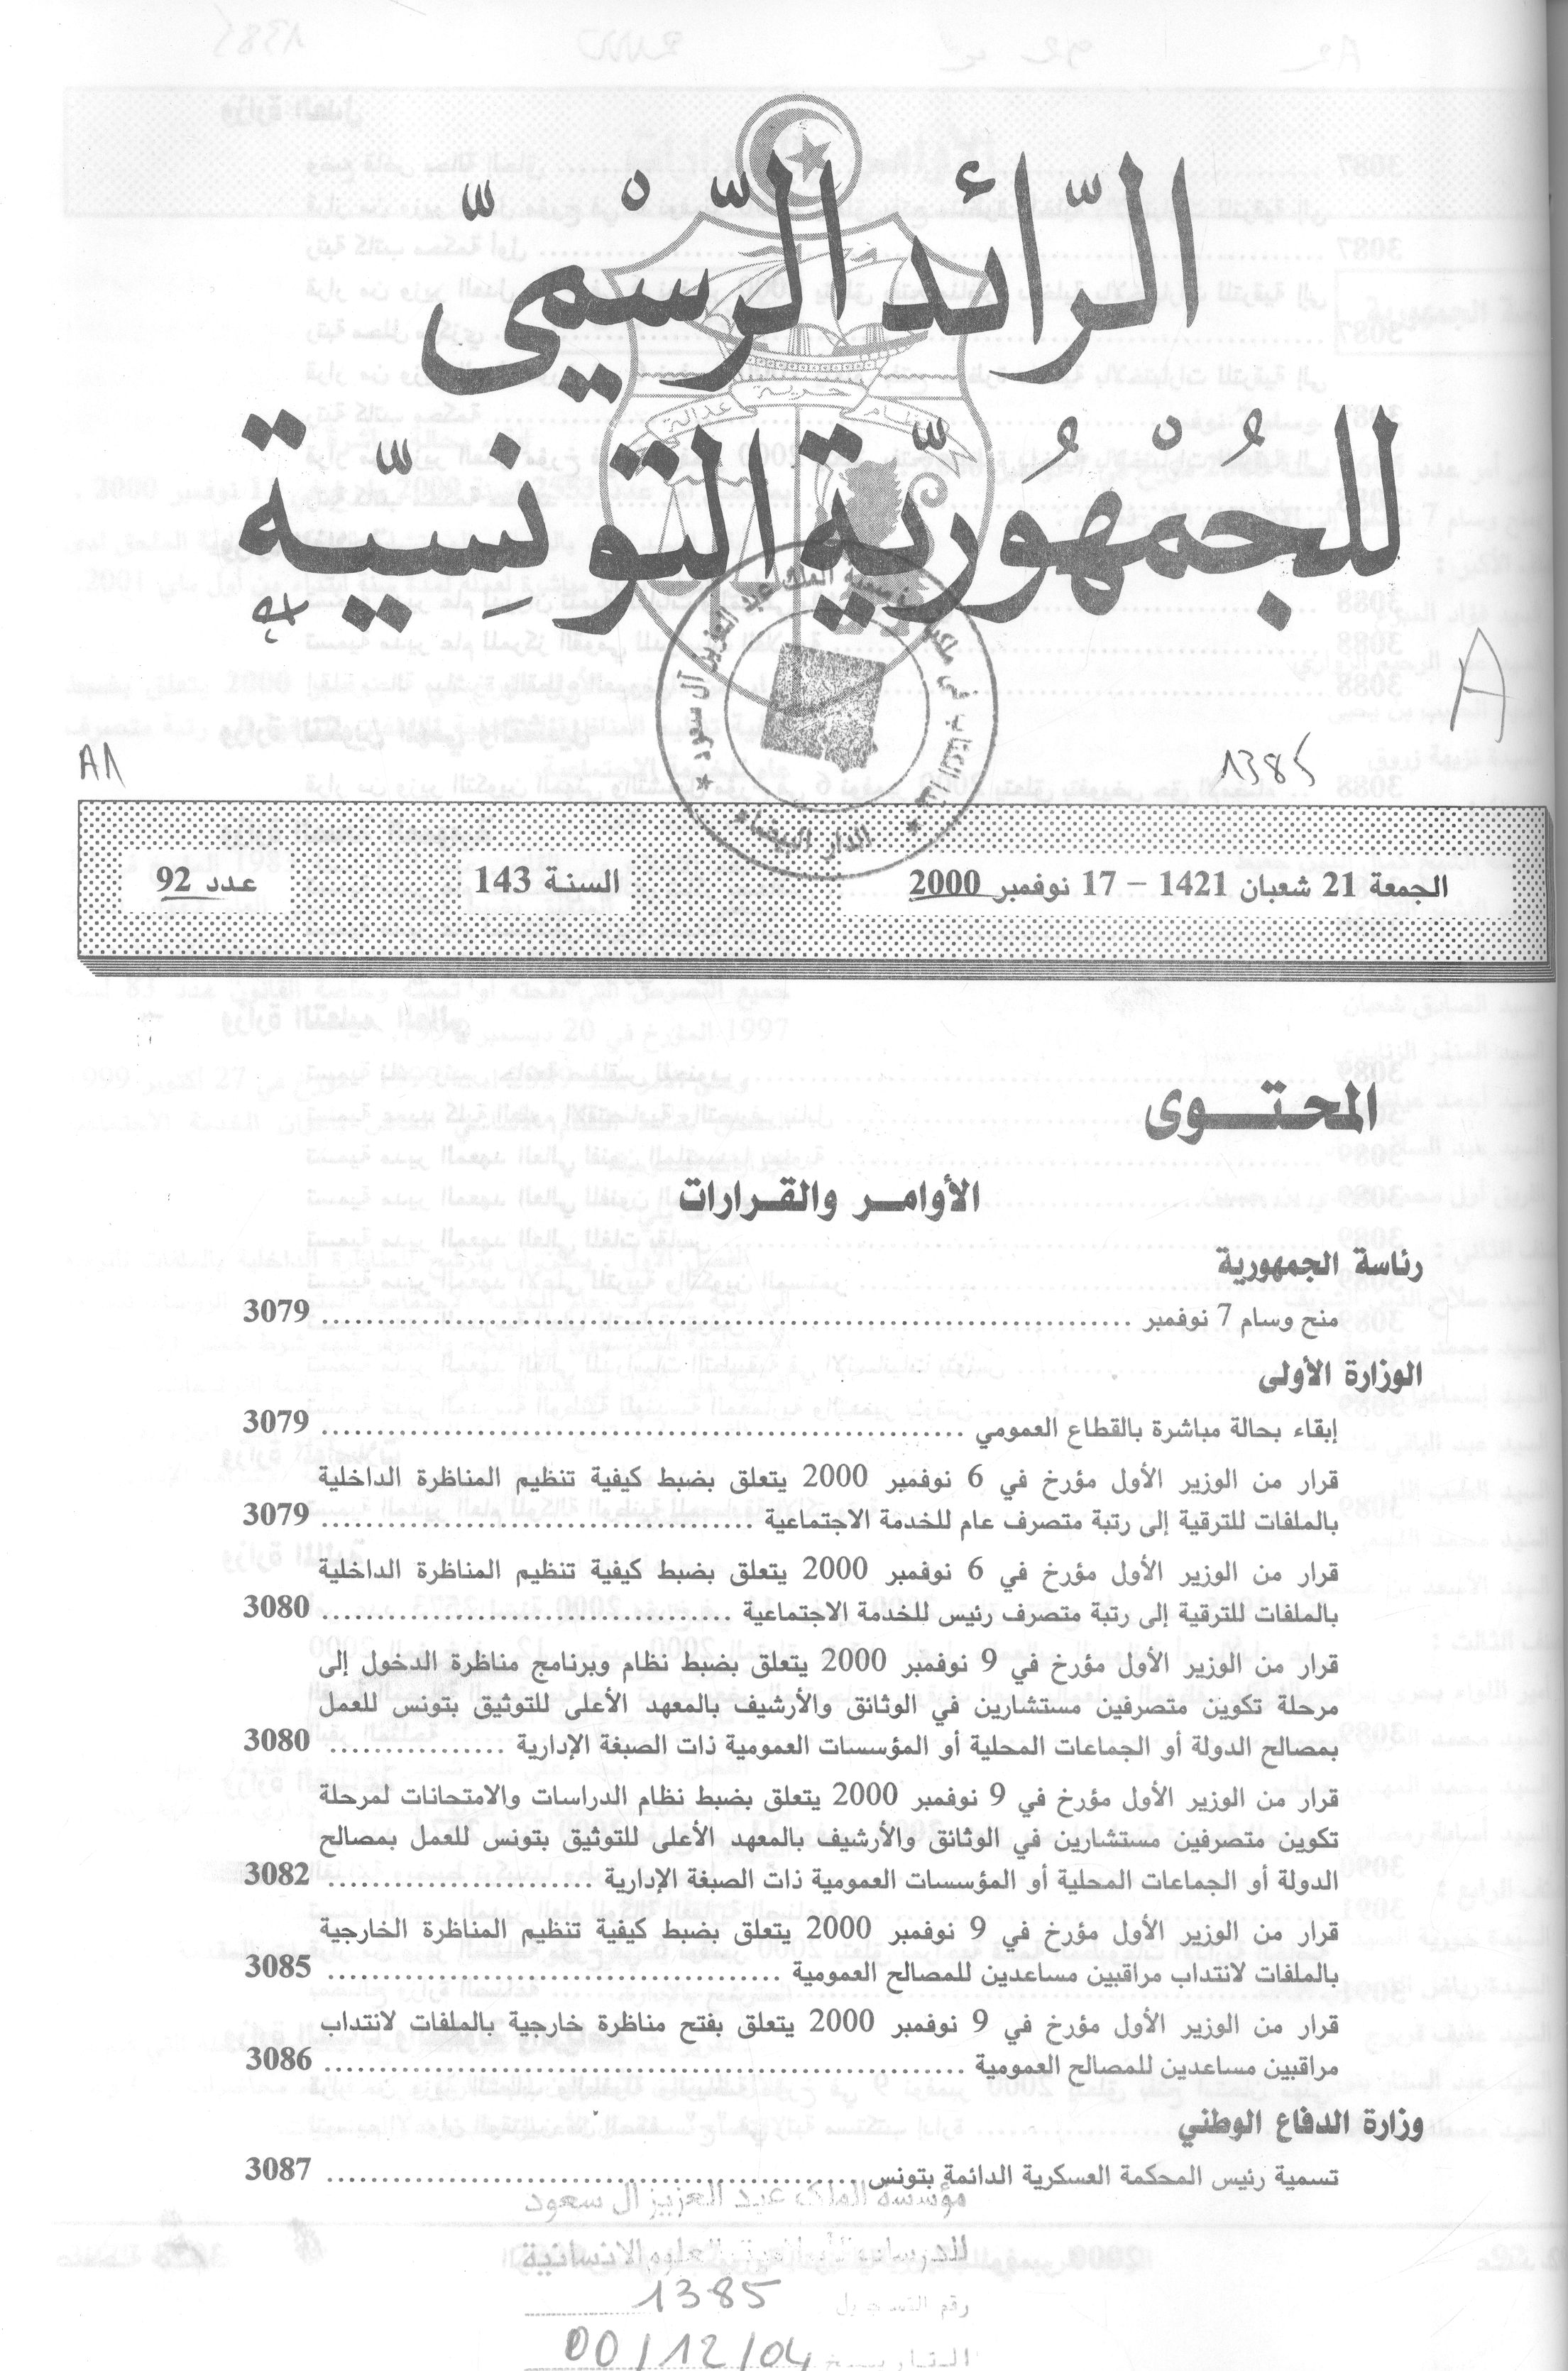 الرّائد الرّسْمي
نظام حرية عدالة
للجُمْهُوريّة التّونِسيّة
A
A1
1385
الدار البيضاء
الجمعة 21 شعبان 1421 – 17 نوفمبر 2000
السنة 143
عدد 92
المحتوى
الأوامر والقرارات
رئاسة الجمهورية
منح وسام 7 نوفمبر ........ 3079
الوزارة الأولى
إبقاء بحالة مباشرة بالقطاع العمومي ........ 3079
قرار من الوزير الأول مؤرخ في 6 نوفمبر 2000 يتعلق بضبط كيفية تنظيم المناظرة الداخلية
بالملفات للترقية إلى رتبة متصرف عام للخدمة الاجتماعية ........ 3079
قرار من الوزير الأول مؤرخ في 6 نوفمبر 2000 يتعلق بضبط كيفية تنظيم المناظرة الداخلية
بالملفات للترقية إلى رتبة متصرف رئيس للخدمة الاجتماعية ........ 3080
قرار من الوزير الأول مؤرخ في 9 نوفمبر 2000 يتعلق بضبط نظام وبرنامج مناظرة الدخول إلى
مرحلة تكوين متصرفين مستشارين في الوثائق والأرشيف بالمعهد الأعلى للتوثيق بتونس للعمل
بمصالح الدولة أو الجماعات المحلية أو المؤسسات العمومية ذات الصبغة الإدارية ........ 3080
قرار من الوزير الأول مؤرخ في 9 نوفمبر 2000 يتعلق بضبط نظام الدراسات والامتحانات لمرحلة
تكوين متصرفين مستشارين في الوثائق والأرشيف بالمعهد الأعلى للتوثيق بتونس للعمل بمصالح
الدولة أو الجماعات المحلية أو المؤسسات العمومية ذات الصبغة الإدارية ........ 3082
قرار من الوزير الأول مؤرخ في 9 نوفمبر 2000 يتعلق بضبط كيفية تنظيم المناظرة الخارجية
بالملفات لانتداب مراقبين مساعدين للمصالح العمومية ........ 3085
قرار من الوزير الأول مؤرخ في 9 نوفمبر 2000 يتعلق بفتح مناظرة خارجية بالملفات لانتداب
مراقبين مساعدين للمصالح العمومية ........ 3086
وزارة الدفاع الوطني
تسمية رئيس المحكمة العسكرية الدائمة بتونس ........ 3087
مؤسسة الملك عبد العزيز آل سعود
للدراسات الإسلامية والعلوم الإنسانية
رقم التسجيل 1385
التاريخ 00/12/04